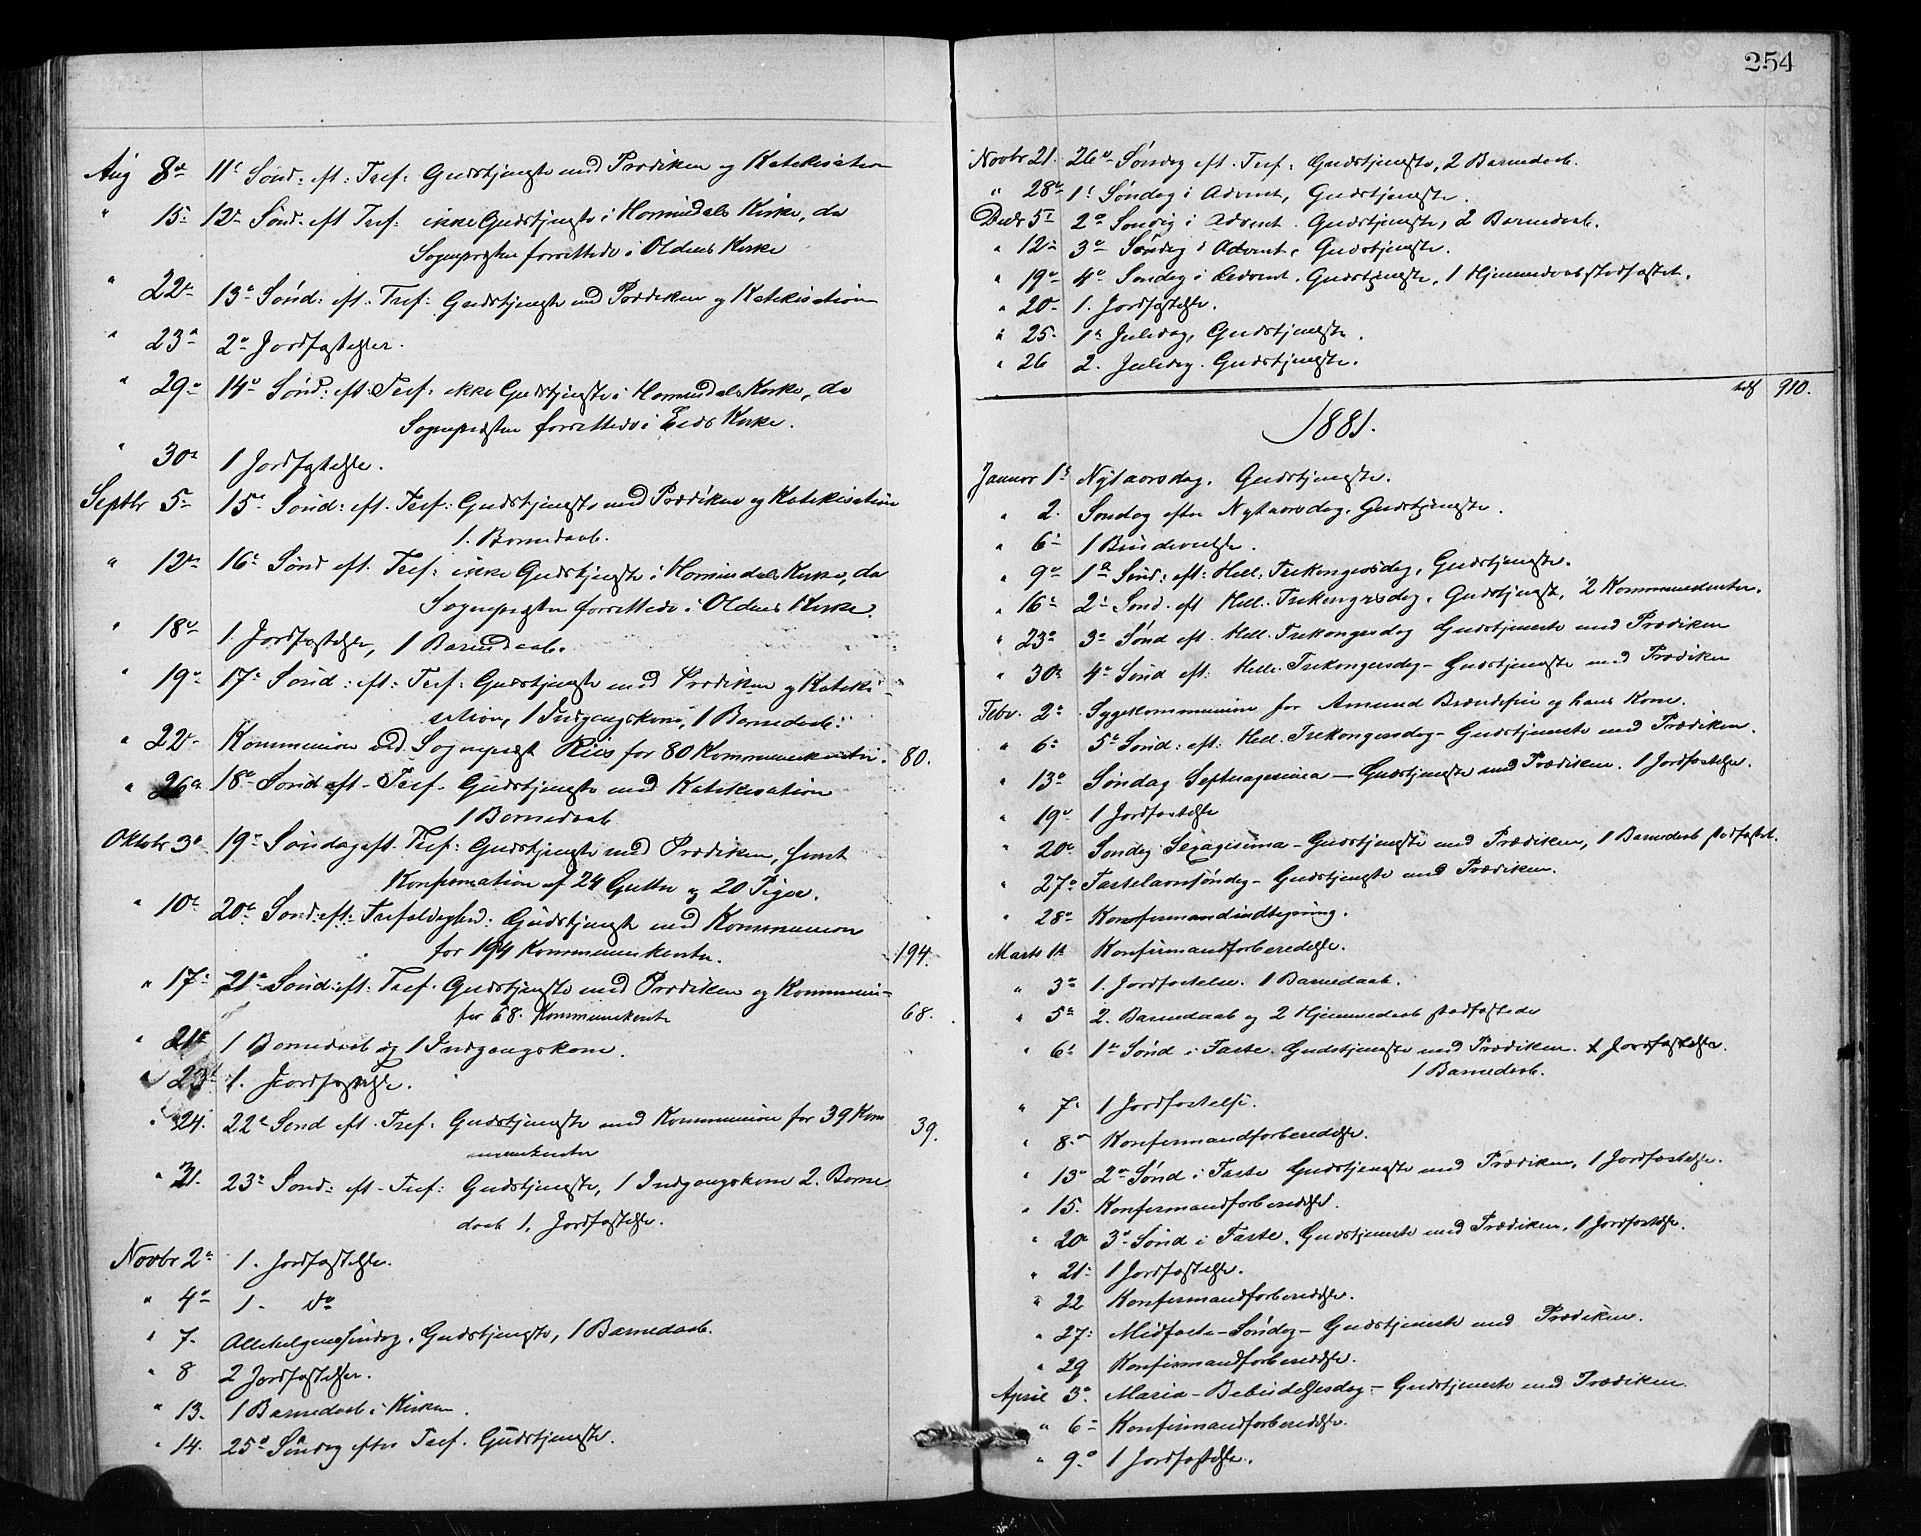 Aug 8de 11te Sönd: eft: Tref: Gudstjeneste med Prædiken og Katekisation
" 15- 12te Sönd. eft Tref: ikke Gudstjeneste i Hornindals Kirke, da
Sognepræsten forrettede i Oldens Kirke
" 22de 13de Sönd: eft. Tref: Gudstjeneste med Prædiken og Katekisation
" 23de 2de Jordfæstelser.
" 29de 14de Sönd: eft: Tref: ikke Gudstjeneste i Hornindals Kirke, da
Sognepræsten forrettede i Eids Kirke.
" 30te 1 Jordfæstelse.
Septbr 5te 15de Sönd: eft. Tref: Gudstjeneste med Prædiken og Katekisation
1. Barnedaab.
" 12te 16de Sönd eft. Tref: ikke Gudstjeneste i Hornindals Kirke, da
Sognepræsten forrettede i Oldens Kirke.
" 18de 1. Jordfæstelse, 1 Barnedaab.
" 19de 17de Sönd: eft: Tref: Gudstjeneste med Prædiken og Kateki-
sation, 1 Indgangskone, 1 Barnedaab.
" 22de Kommunion ved Sognepræst Ries for 80 Kommunikanter. 80.
" 26de 18de Sönd eft- Tref- Gudstjeneste med Katekisation
1 Barnedaab
Oktobr 3de 19de Söndag eft. Tref: Gudstjeneste med Prædiken, samt
Konfirmation af 24 Gutter og 20 Piger.
" 10de 20de Sönd: eft: Trefoldighed: Gudstjeneste med Kommunion
for 194 Kommunikanter. 194.
" 17de 21de Sönd: eft: Tref. Gudstjeneste med Prædiken og Kommunion
for 68. Kommunikanter 68.
" 21de 1 Barnedaab og 1 Indgangskone.
" 23de 1. Jordfæstelse.
" 24. 22de Sönd eft. Tref: Gudstjeneste med Kommunion for 39 Kom
munikanter 39.
" 31. 23de Sönd: eft- Tref: Gudstjeneste, 1 Indgangskone 2. Barne
daab 1. Jordfæstelse.
Novbr 2de 1. Jordfæstelse.
" 4de 1- do
" 7. Allehelgenssöndag, Gudstjeneste, 1 Barnedaab.
" 8 2 Jordfæstelser.
" 13. 1 Barnedaab i Kirken.
" 14. 25de Söndag efter Tref. Gudstjeneste.
254
Novbr 21. 26de Söndag eft. Tref: Gudstjeneste, 2 Barnedaab.
" 28de 1ste Söndag i Advent, Gudstjeneste.
Decbr 5te 2den Söndag i Advent. Gudstjeneste, 2 Barnedaab.
" 12te 3de Söndag i Advent, Gudstjeneste.
" 19de 4de Söndag i Advent. Gudstjeneste, 1 Hjemmedaab stadfæstet.
" 20- 1. Jordfæstelse.
" 25- 1ste Juledag, Gudstjeneste.
" 26 2. Juledag. Gudstjeneste.
910.
1881.
Januar 1ste Nytaarsdag. Gudstjeneste.
" 2. Söndag efter Nytaarsdag. Gudstjeneste.
" 6te 1 Brudevielse.
" 9de 1ste Sönd: eft: Hell. Trekongersdag, Gudstjeneste.
" 16de 2den Sönd. eft Hell. Trekongersdag. Gudstjeneste, 2 Kommunikanter.
" 23de 3de Sönd eft. Hell. Trekongersdag Gudstjeneste med Prædiken
" 30te 4de Sönd eft: Hell. Trekongersdag- Gudstjeneste med Prædiken
Febr. 2den Sygekommunion for Amund og hans Kone.
" 6te 5te Sönd: eft: Hell. Trekongersdag- Gudstjeneste med Prædiken.
" 13de Söndag Septuagesima - Gudstjeneste med Prædiken. 1 Jordfæstelse.
" 19de 1 Jordfæstelse
" 20de Söndag Sexagesima - Gudstjeneste med Prædiken, 1 Barnedaab stadfæstet.
" 27de Fastelavnssöndag- Gudstjeneste med Prædiken.
" 28de Konfirmandindtegning.
Marts 1ste Konfirmandforberedelse.
" 3de 1. Jordfæstelse. 1 Barnedaab.
" 5te 2. Barnedaab og 2 Hjemmedaab stadfæstede
" 6te 1ste Sönd i Faste. Gudstjeneste med Prædiken. 1 Jordfæstelse.
1 Barnedaab.
" 7- 1 Jordfæstelse.
" 8de Konfirmandforberedelse.
" 13de 2den Sönd i Faste Gudstjeneste med Prædiken, 1 Jordfæstelse.
" 15. Konfirmandforberedelse.
" 20de 3de Sönd i Faste. Gudstjeneste med Prædiken, 1 Jordfæstelse.
" 21- 1 Jordfæstelse.
" 22 Konfirmandforberedelse.
" 27: Midfaste-Söndag- Gudstjeneste med Prædiken.
" 29 Konfirmandforberedelse.
April 3de Maria-Bebudelsesdag- Gudstjeneste med Prædiken.
" 6te Konfirmandforberedelse.
" 9de 1 Jordfæstelse.